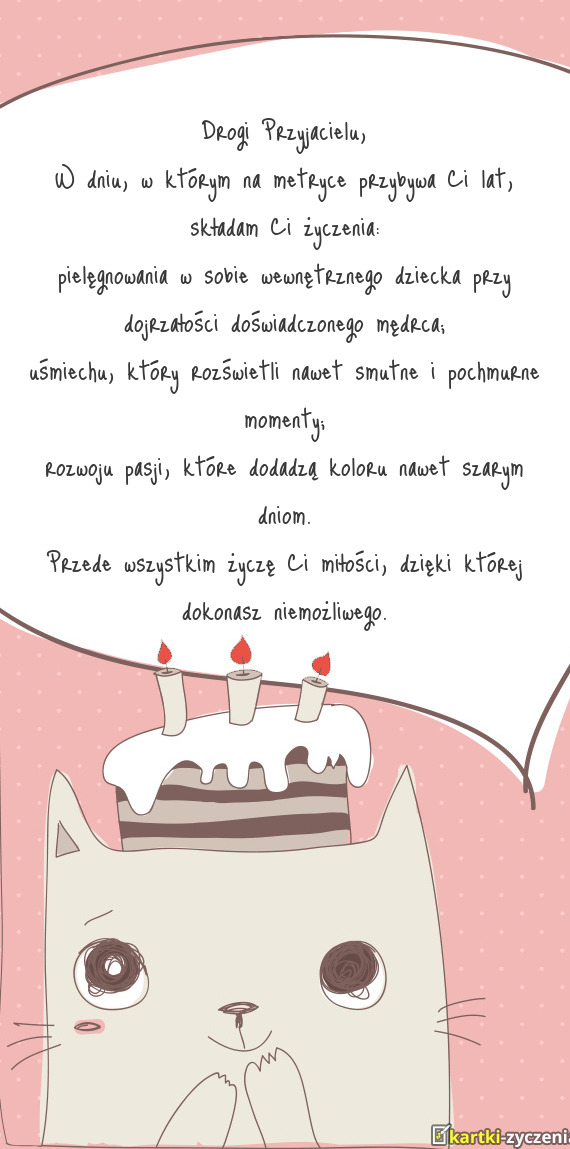 Drogi Przyjacielu,
W dniu, w którym na metryce przybywa Ci lat,
składam Ci życzenia:
pielęgnowania w sobie wewnętrznego dziecka przy
dojrzałości doświadczonego mędrca;
uśmiechu, który rozświetli nawet smutne i pochmurne
momenty;
rozwoju pasji, które dodadzą koloru nawet szarym
dniom.
Przede wszystkim życzę Ci miłości, dzięki której
dokonasz niemożliwego.
kartki-zyczenia